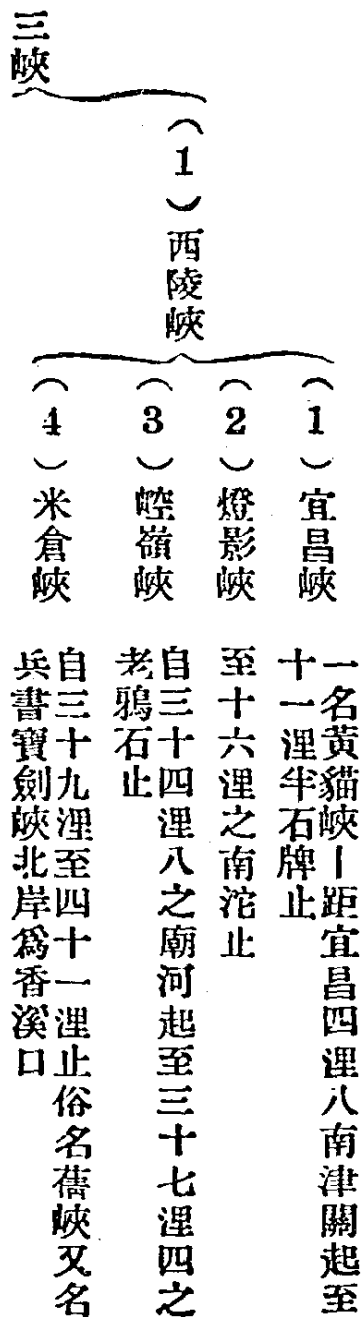 三峽
（1）西陵峽
（1）宜昌峽
一名黃貓峽—距宜昌四浬八南津關起至
十一浬半石牌止
（2）燈影峽
至十六浬之南沱止
（3）崆嶺峽
自三十四浬八之廟河起至三十七浬四之
老鴉石止
（4）米倉峽
自三十九浬至四十一浬止俗名蓿峽又名
兵書寶劍峽北岸爲香溪口